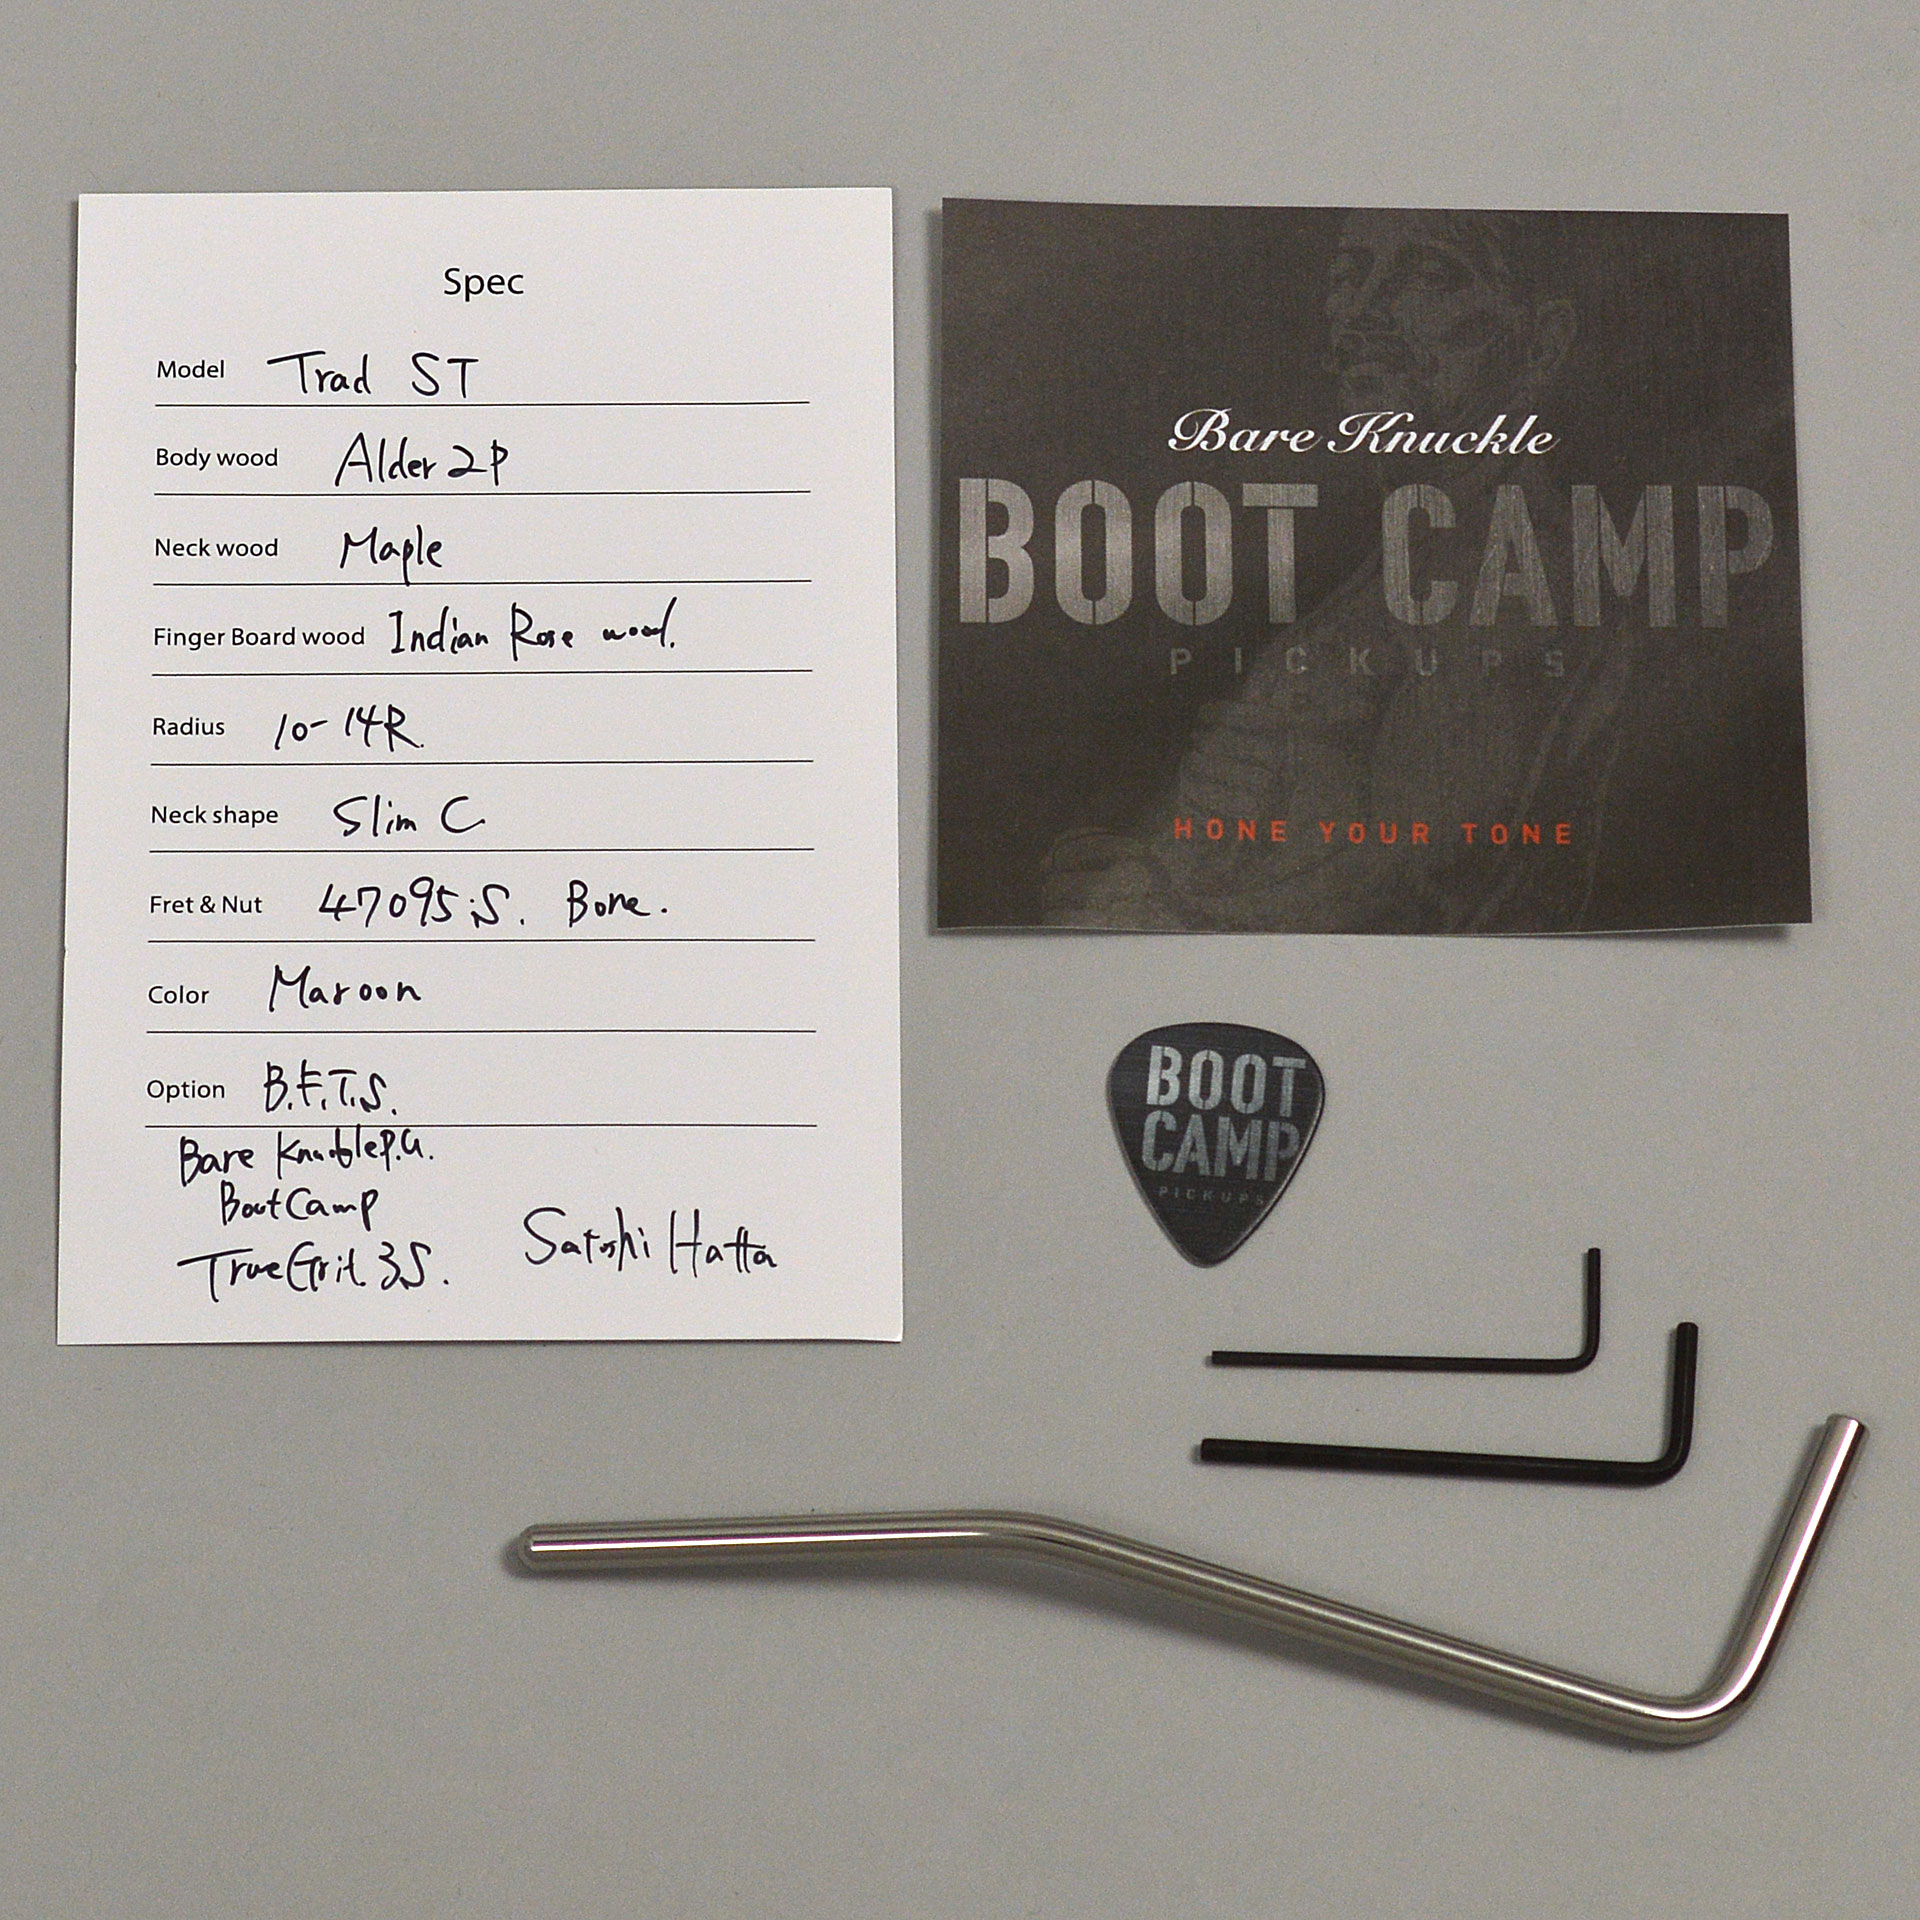 Spec
Model Trad ST
Body wood Alder 2P
Neck wood Maple
Finger Board wood Indian Rose wood.
Radius 10-14R.
Neck shape Slim C
Fret & Nut 47095:S. Bone.
Color Maroon
Option B.F.T.S.
Bare KnuckleP.U.
BootCamp
TrueGrit 3S.
Satoshi Hatta
Bare Knuckle
BOOT CAMP
PICKUPS
HONE YOUR TONE
BOOT
CAMP
PICKUPS